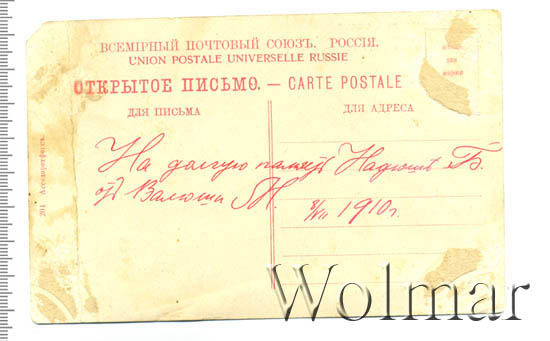 ВСЕМІРНЫЙ ПОЧТОВЫЙ СОЮЗЪ. РОССІЯ.
UNION POSTALE UNIVERSELLE RUSSIE
ОТКРЫТОЕ ПИСЬМО. — CARTE POSTALE
ДЛЯ ПИСЬМА
ДЛЯ АДРЕСА
МѢСТО
ДЛЯ
МАРКИ
На долгую память Надюшѣ Б.
отъ Валюши М.
8/VII 1910 г.
204
Wolmar